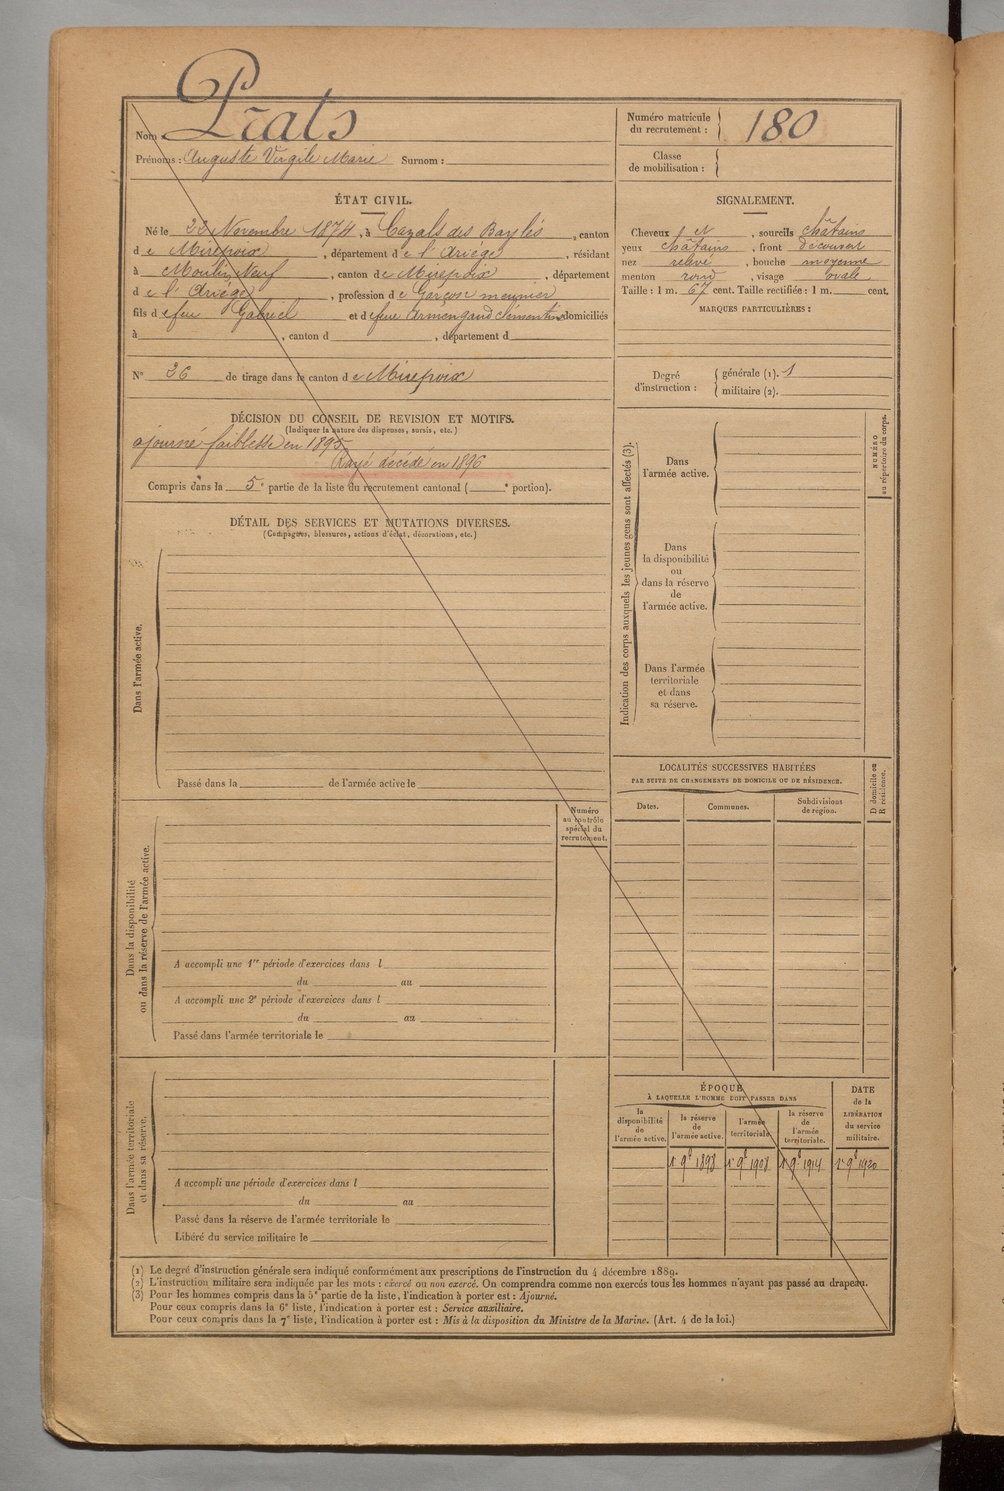 Nom : Prats
Prénoms : Auguste Virgile Marie Surnom :
Numéro matricule du recrutement : 180
Classe de mobilisation :
ÉTAT CIVIL.
Né le 22 Novembre 1874, à Cazals des Baylès, canton
de Mirepoix, département de l'Ariège, résidant
à Moulin Neuf, canton de Mirepoix, département
de l'Ariège, profession de Garçon meunier
fils de feu Gabriel et de feue Armengaud Clémentine domiciliés
à , canton d , département d
N° 26 de tirage dans le canton de Mirepoix
SIGNALEMENT.
Cheveux et , sourcils châtains
yeux châtains , front découvert
nez relevé , bouche moyenne
menton rond , visage ovale
Taille : 1 m. 67 cent. Taille rectifiée : 1 m. cent.
MARQUES PARTICULIÈRES :
Degré d'instruction : générale (1). 1
militaire (2).
DÉCISION DU CONSEIL DE REVISION ET MOTIFS.
(Indiquer la nature des dispenses, sursis, etc.)
ajourné faiblesse en 1895
Rayé décédé en 1896
Compris dans la 5e partie de la liste du recrutement cantonal ( e portion).
DÉTAIL DES SERVICES ET MUTATIONS DIVERSES.
(Campagnes, blessures, actions d'éclat, décorations, etc.)
Dans l'armée active.
Passé dans la de l'armée active le
Numéro
au contrôle
spécial du
recrutement.
Dans la disponibilité
ou dans la réserve de l'armée active.
A accompli une 1re période d'exercices dans l
du au
A accompli une 2e période d'exercices dans l
du au
Passé dans l'armée territoriale le
Dans l'armée territoriale
et dans sa réserve.
A accompli une période d'exercices dans l
du au
Passé dans la réserve de l'armée territoriale le
Libéré du service militaire le
Indication des corps auxquels les jeunes gens sont affectés (3).
Dans
l'armée active.
Dans
la disponibilité
ou
dans la réserve
de
l'armée active.
Dans l'armée
territoriale
et dans
sa réserve.
NUMÉRO
au répertoire du corps.
LOCALITÉS SUCCESSIVES HABITÉES
PAR SUITE DE CHANGEMENTS DE DOMICILE OU DE RÉSIDENCE.
D domicile ou
R résidence.
Dates. Communes. Subdivisions de région.
ÉPOQUE
À LAQUELLE L'HOMME DOIT PASSER DANS
la disponibilité de l'armée active. la réserve de l'armée active. l'armée territoriale. la réserve de l'armée territoriale.
DATE de la LIBÉRATION du service militaire.
1er 9bre 1898 1er 9bre 1908 1er 9bre 1914 1er 9bre 1920
(1) Le degré d'instruction générale sera indiqué conformément aux prescriptions de l'instruction du 4 décembre 1889.
(2) L'instruction militaire sera indiquée par les mots : exercé ou non exercé. On comprendra comme non exercés tous les hommes n'ayant pas passé au drapeau.
(3) Pour les hommes compris dans la 5e partie de la liste, l'indication à porter est : Ajourné.
Pour ceux compris dans la 6e liste, l'indication à porter est : Service auxiliaire.
Pour ceux compris dans la 7e liste, l'indication à porter est : Mis à la disposition du Ministre de la Marine. (Art. 4 de la loi.)